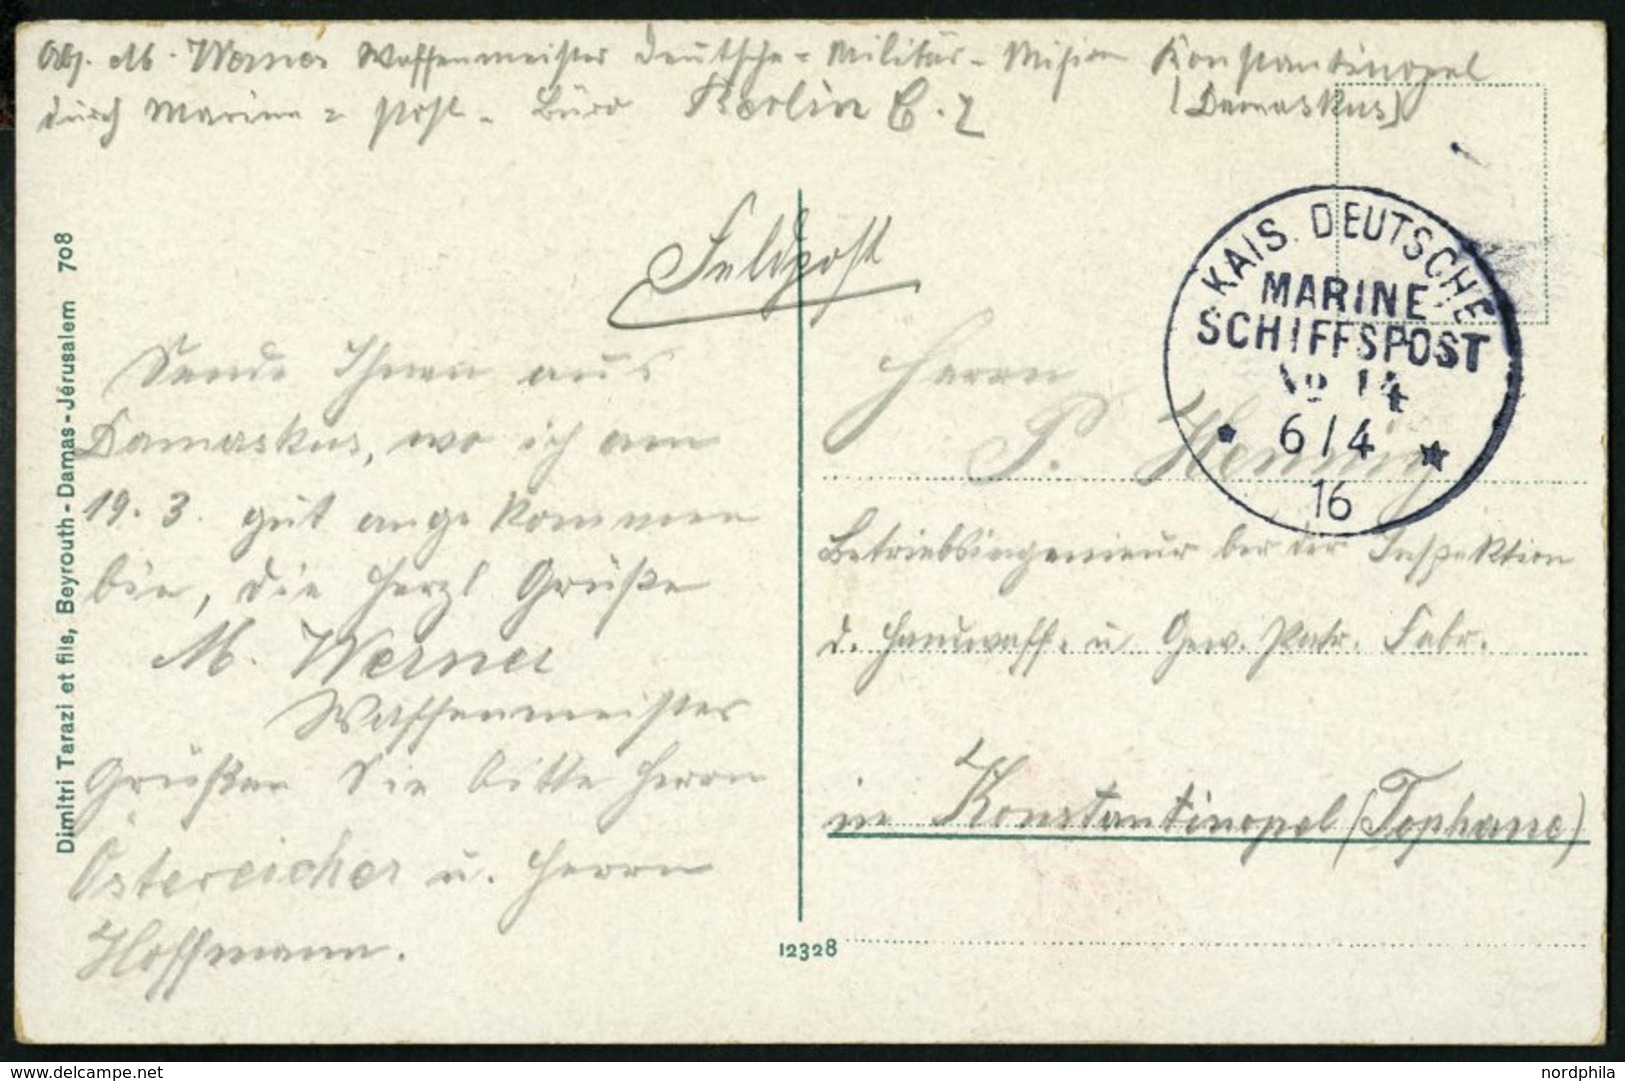 Abs. M. Werner Waffenmeister Deutsche-Militär-Mision Konstantinopel
durch Marine-Post-Büro Berlin C. 2 (Damaskus)
Feldpost
KAIS. DEUTSCHE
MARINE
SCHIFFSPOST
No 14
6/4
16
Sende Ihnen aus
Damaskus, wo ich am
19. 3. gut angekommen
bin, die herzl Grüße
M. Werner
Waffenmeister
Grüßen Sie bitte Herrn
Östereicher u. Herrn
Hoffmann.
Herrn
P. Hennig
Betriebsingenieur bei der Inspektion
d. Handwaff. u. Gew. Patr. Fabr.
in Konstantinopel (Tophane)
Dimitri Tarazi et fils, Beyrouth-Damas-Jérusalem 708
12328
delcampe.net
nordphila